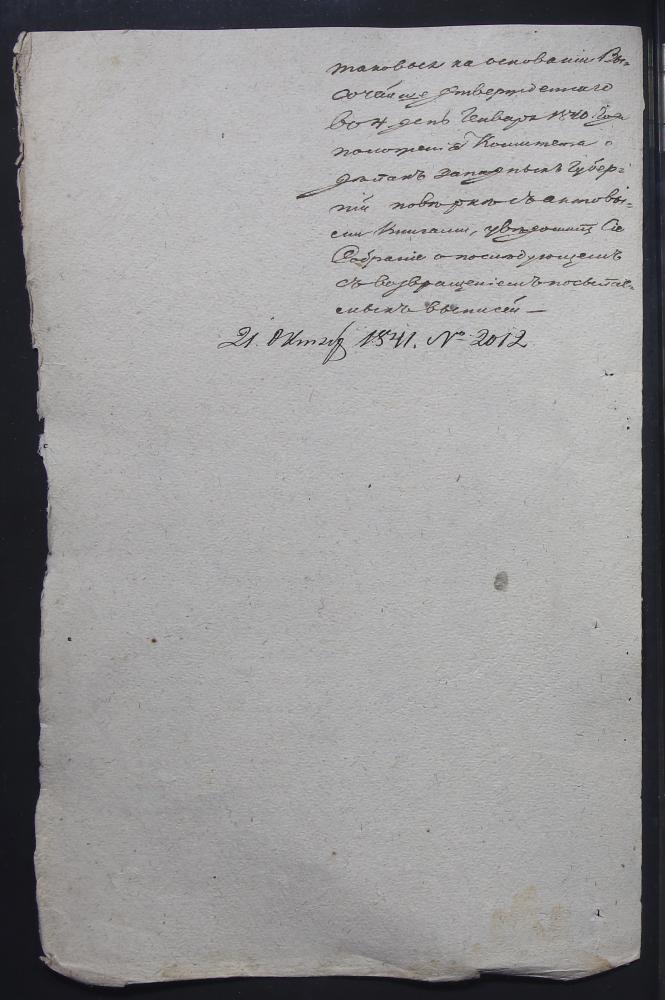 таковыхъ на основаніи Вы-
сочайше утвержденнаго
во 4 день Генваря 1840 года
положенія Комитета о
дѣлахъ западныхъ Губер-
ній повѣрки съ актовы-
ми Книгами, увѣдомитъ Сіе
Собраніе о послѣдующемъ
съ возвращеніемъ посылае-
мыхъ выписей —
21. Октяб 1841. № 2012